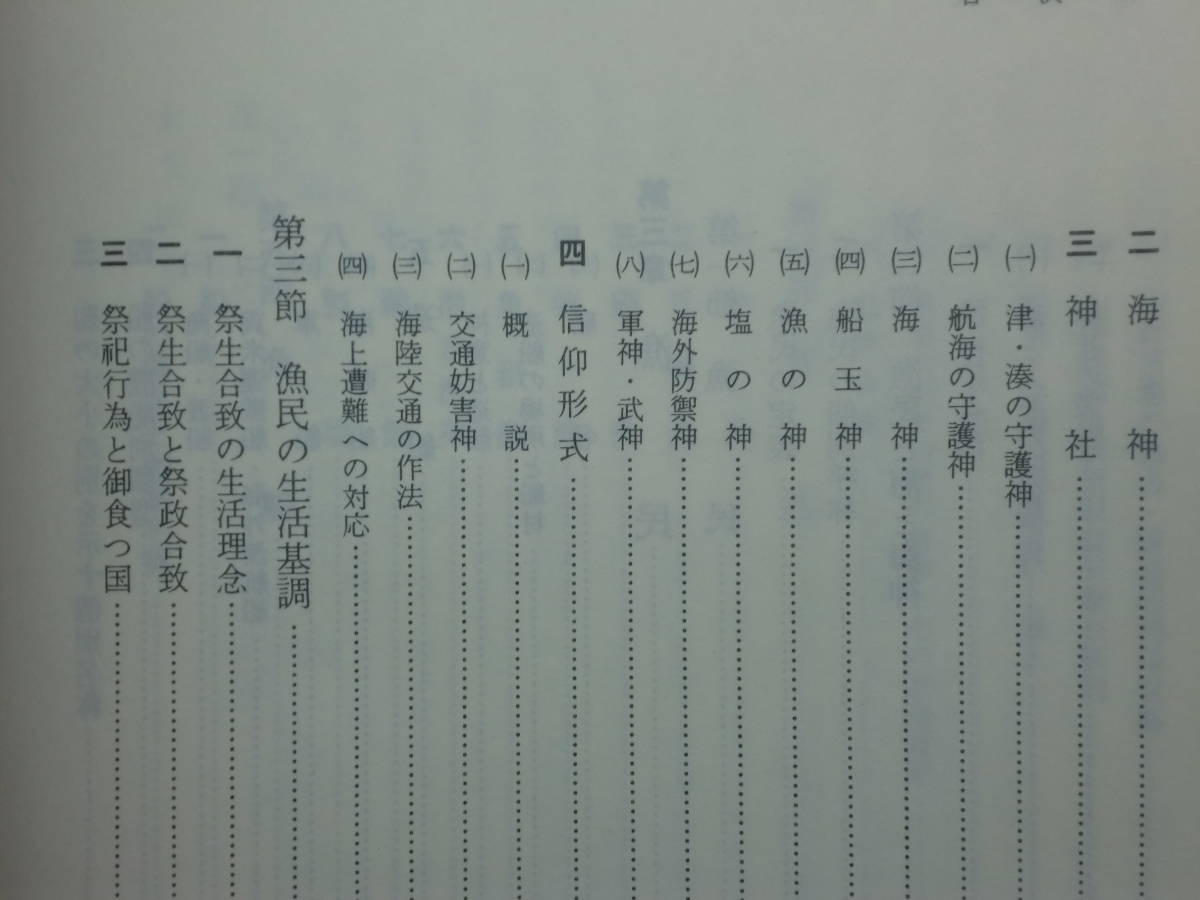 二 海神……
三 神社……
㈠ 津・湊の守護神……
㈡ 航海の守護神……
㈢ 海神……
㈣ 船玉神……
㈤ 漁の神……
㈥ 塩の神……
㈦ 海外防禦神……
㈧ 軍神・武神……
四 信仰形式……
㈠ 概説……
㈡ 交通妨害神……
㈢ 海陸交通の作法……
㈣ 海上遭難への対応……
第三節 漁民の生活基調……
一 祭生合致の生活理念……
二 祭生合致と祭政合致……
三 祭祀行為と御食つ国……